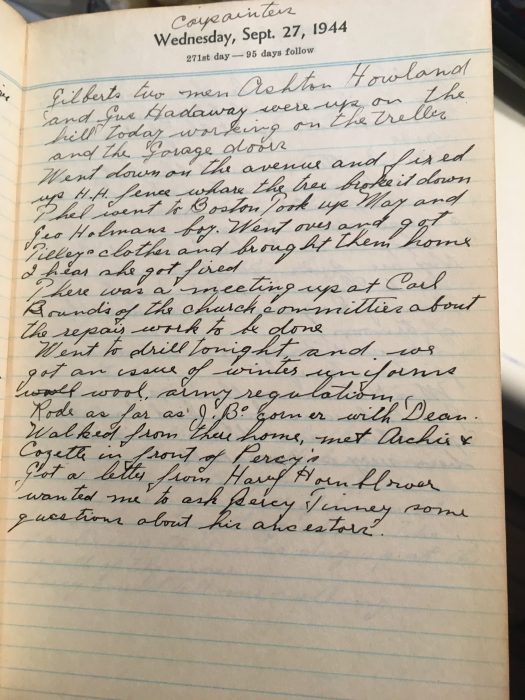 Carpainters
Wednesday, Sept. 27, 1944
271st day — 95 days follow
Gilberts two men Ashton Howland
and Gus Hadaway were up on the
hill today working on the treller
and the Garage doors
Went down on the avenue and fixed
up H.H. fence whare the tree broke it down
Phel went to Boston Took up May and
Geo Holmans boy. Went over and got
Tilleys clother and brought them home
I hear she got fired
There was a meeting up at Carl
Bounds of the church committies about
the repair work to be done
Went to drill tonight and we
got an issue of winter uniforms
wool, army regulation,
Rode as far as J.B's corner with Dean.
Walked from there home, met Archie &
Cozette in front of Percy's
Got a letter from Hornblower
wanted me to ask Percy Tinney some
questions about his ancestors.